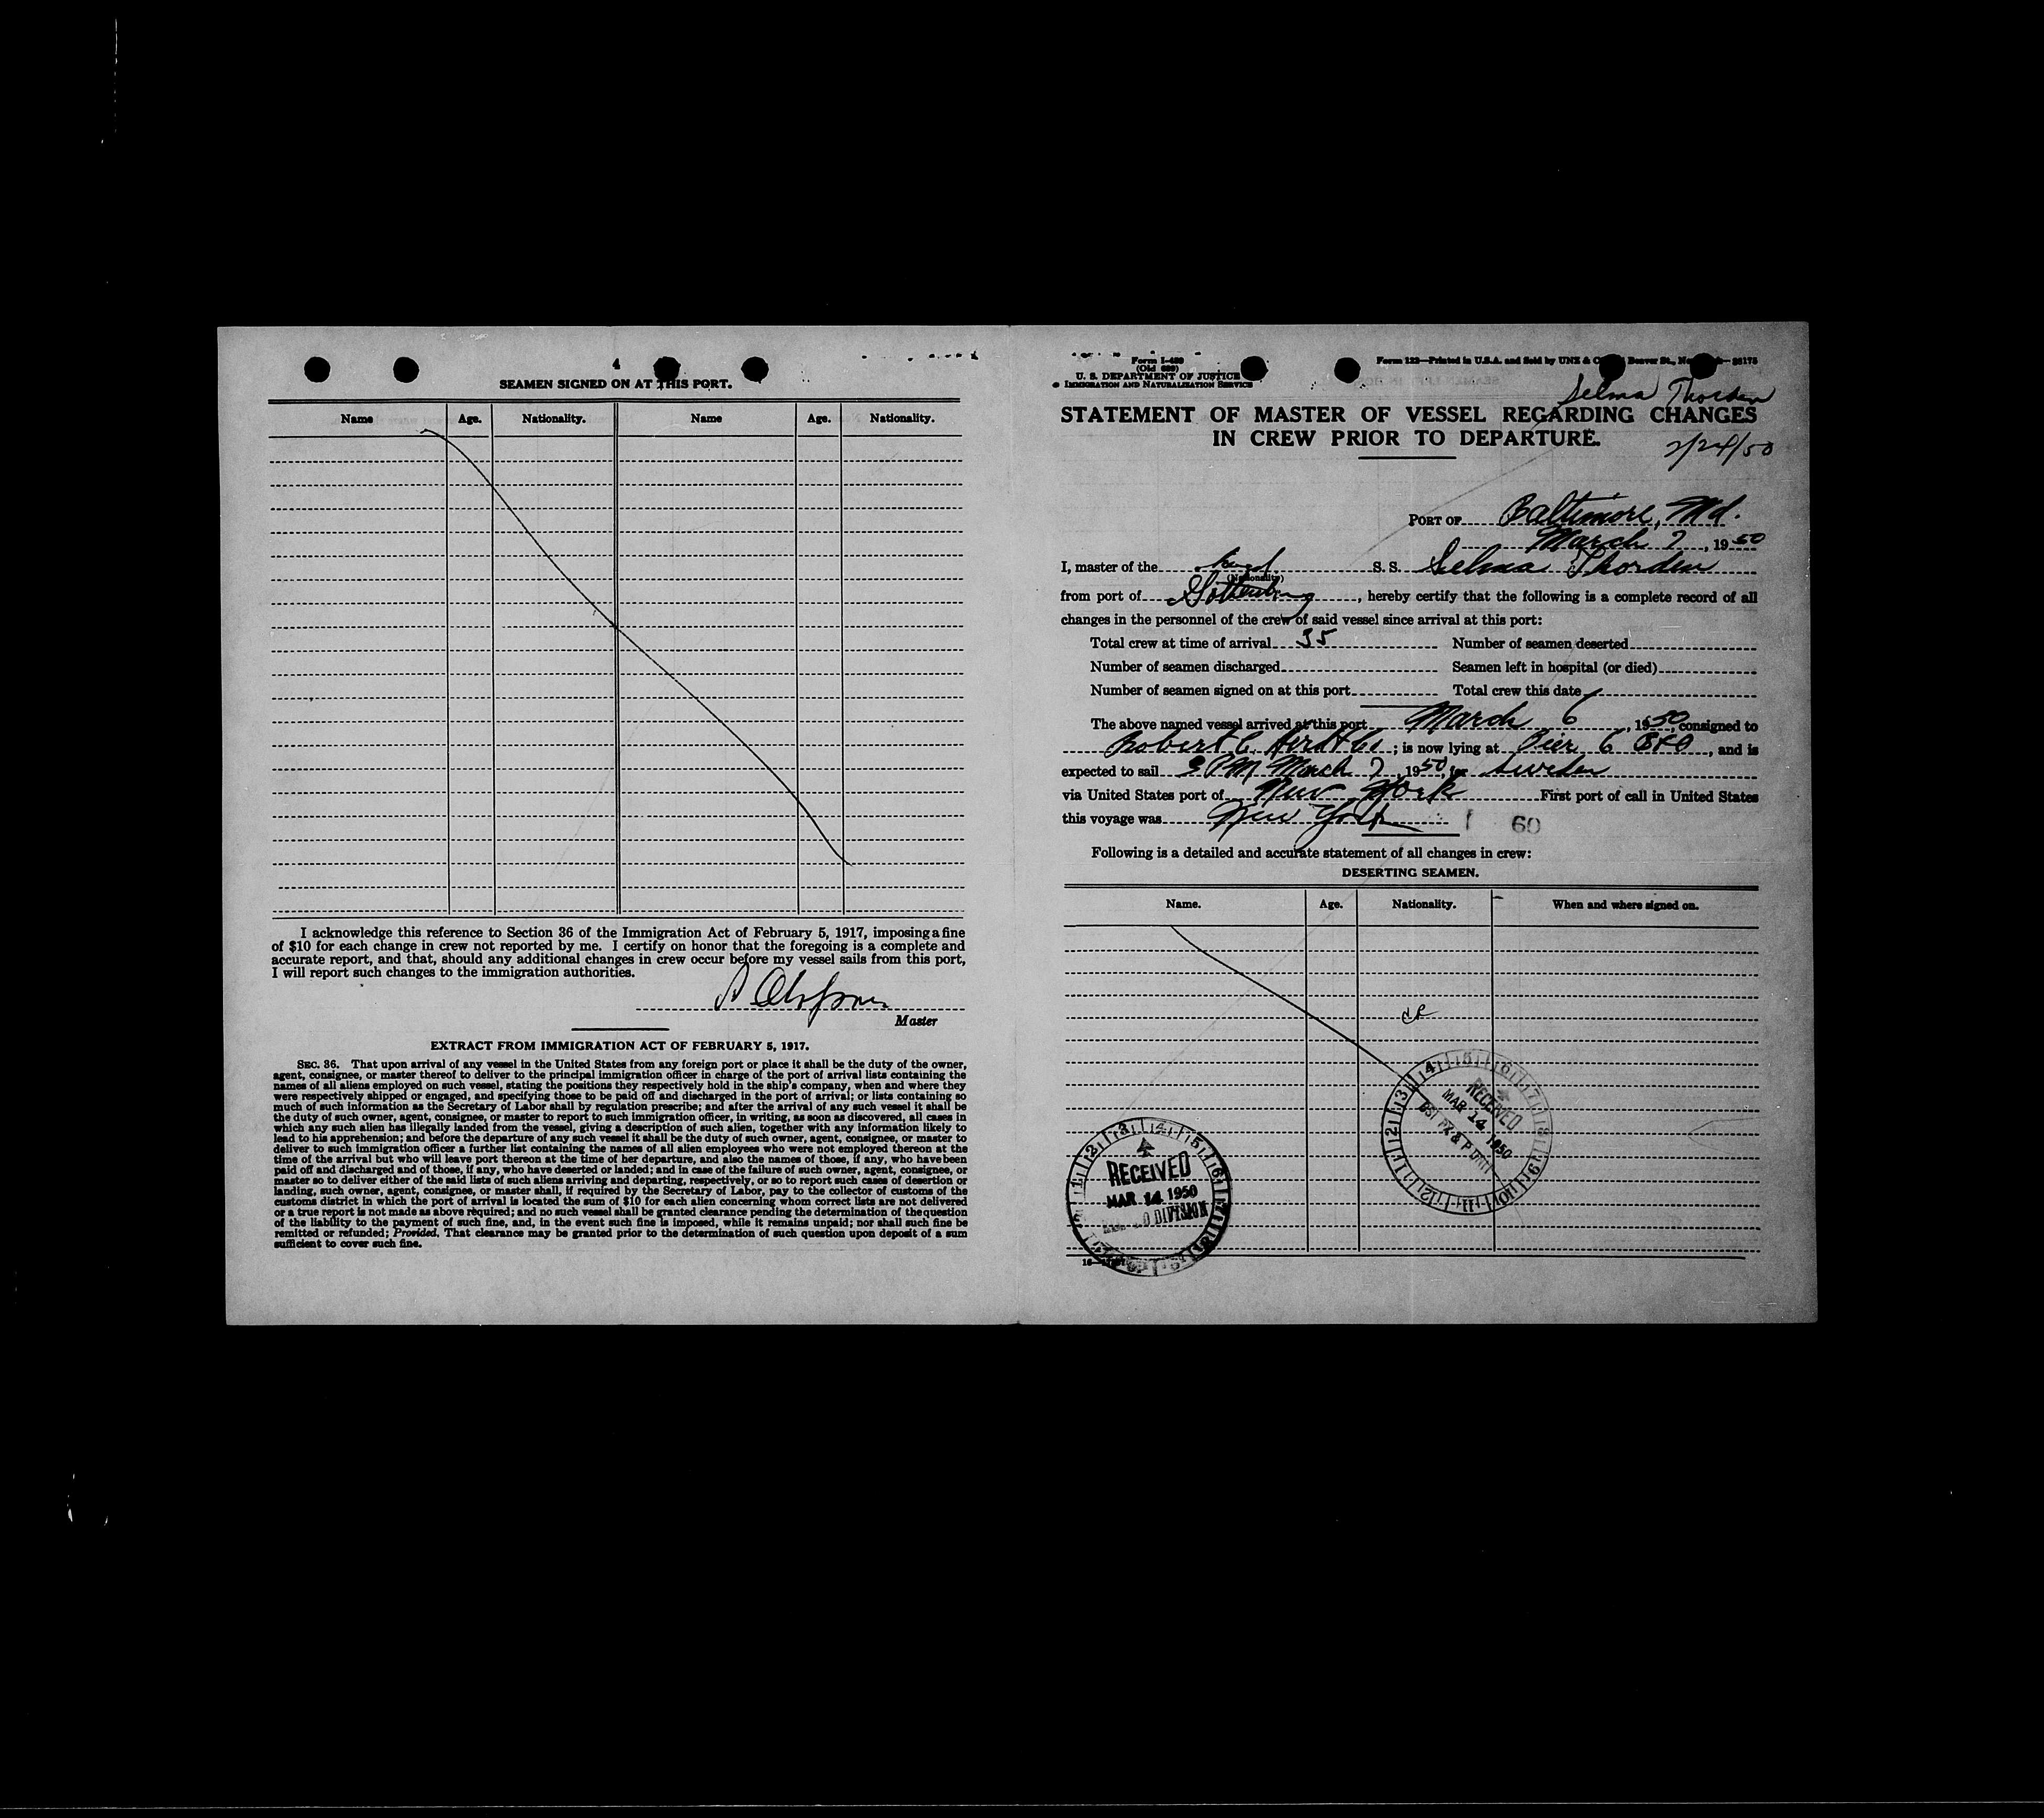 4
SEAMEN SIGNED ON AT THIS PORT.
Name Age. Nationality. Name Age. Nationality.
I acknowledge this reference to Section 36 of the Immigration Act of February 5, 1917, imposing a fine
of $10 for each change in crew not reported by me. I certify on honor that the foregoing is a complete and
accurate report, and that, should any additional changes in crew occur before my vessel sails from this port,
I will report such changes to the immigration authorities.
Master
EXTRACT FROM IMMIGRATION ACT OF FEBRUARY 5, 1917.
SEC. 36. That upon arrival of any vessel in the United States from any foreign port or place it shall be the duty of the owner,
agent, consignee, or master thereof to deliver to the principal immigration officer in charge of the port of arrival lists containing the
names of all aliens employed on such vessel, stating the positions they respectively hold in the ship's company, when and where they
were respectively shipped or engaged, and specifying those to be paid off and discharged in the port of arrival; or lists containing so
much of such information as the Secretary of Labor shall by regulation prescribe; and after the arrival of any such vessel it shall be
the duty of such owner, agent, consignee, or master to report to such immigration officer, in writing, as soon as discovered, all cases in
which any such alien has illegally landed from the vessel, giving a description of such alien, together with any information likely to
lead to his apprehension; and before the departure of any such vessel it shall be the duty of such owner, agent, consignee, or master to
deliver to such immigration officer a further list containing the names of all alien employees who were not employed thereon at the
time of the arrival but who will leave port thereon at the time of her departure, and also the names of those, if any, who have been
paid off and discharged and of those, if any, who have deserted or landed; and in case of the failure of such owner, agent, consignee, or
master so to deliver either of the said lists of such aliens arriving and departing, respectively, or so to report such cases of desertion or
landing, such owner, agent, consignee, or master shall, if required by the Secretary of Labor, pay to the collector of customs of the
customs district in which the port of arrival is located the sum of $10 for each alien concerning whom correct lists are not delivered
or a true report is not made as above required; and no such vessel shall be granted clearance pending the determination of the question
of the liability to the payment of such fine, and, in the event such fine is imposed, while it remains unpaid; nor shall such fine be
remitted or refunded; Provided, That clearance may be granted prior to the determination of such question upon deposit of a sum
sufficient to cover such fine.
Form I-489
(Old 689)
U. S. DEPARTMENT OF JUSTICE
IMMIGRATION AND NATURALIZATION SERVICE
Form 122—Printed in U.S.A. and Sold by UNZ & Beaver St.,
Selma Thorden
STATEMENT OF MASTER OF VESSEL REGARDING CHANGES
IN CREW PRIOR TO DEPARTURE.
2/24/50
PORT OF Baltimore, Md.
March 7, 1950
I, master of the S. S. Selma Thorden
(Nationality)
from port of Gothenburg, hereby certify that the following is a complete record of all
changes in the personnel of the crew of said vessel since arrival at this port:
Total crew at time of arrival 35 Number of seamen deserted
Number of seamen discharged Seamen left in hospital (or died)
Number of seamen signed on at this port Total crew this date
The above named vessel arrived at this port March 6, 1950, consigned to
Robert C. Herd & Co; is now lying at Pier 6 B&O, and is
expected to sail 5 PM March 7, 1950, for Sweden
via United States port of New York First port of call in United States
this voyage was New York
60
Following is a detailed and accurate statement of all changes in crew:
DESERTING SEAMEN.
Name. Age. Nationality. When and where signed on.
RECEIVED
MAR 14 1950
DIVISION
RECEIVED
MAR 14 1950